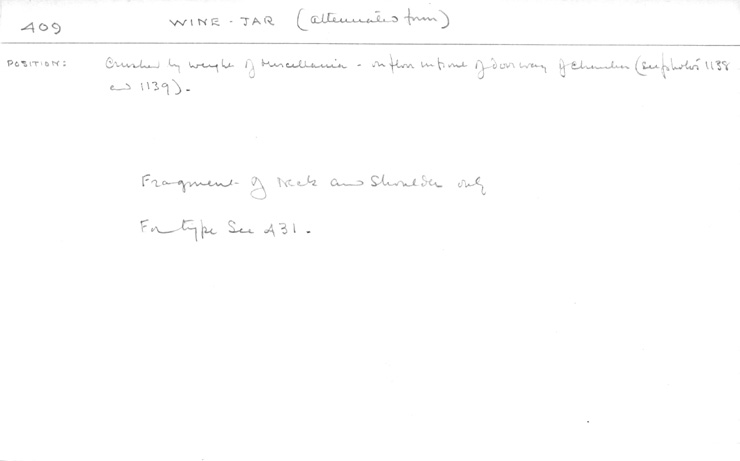 409
WINE-JAR (attenuated form)
POSITION: Crushed by weight of Miscellania - on floor in front of doorway of Chamber (see photos 1138
and 1139).
Fragment of Neck and Shoulder only
For type See 431.